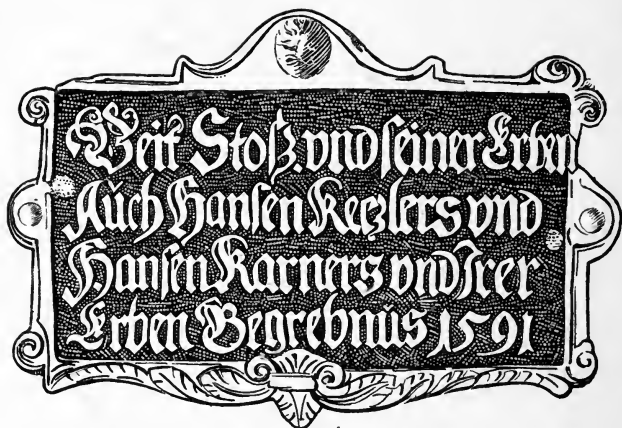 Veit Stoß. vnd seiner Erben
Auch Hansen Keczlers vnd
Hansen Karners vnd Irer
Erben Begrebnus 1591